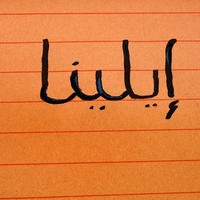 إيلينا